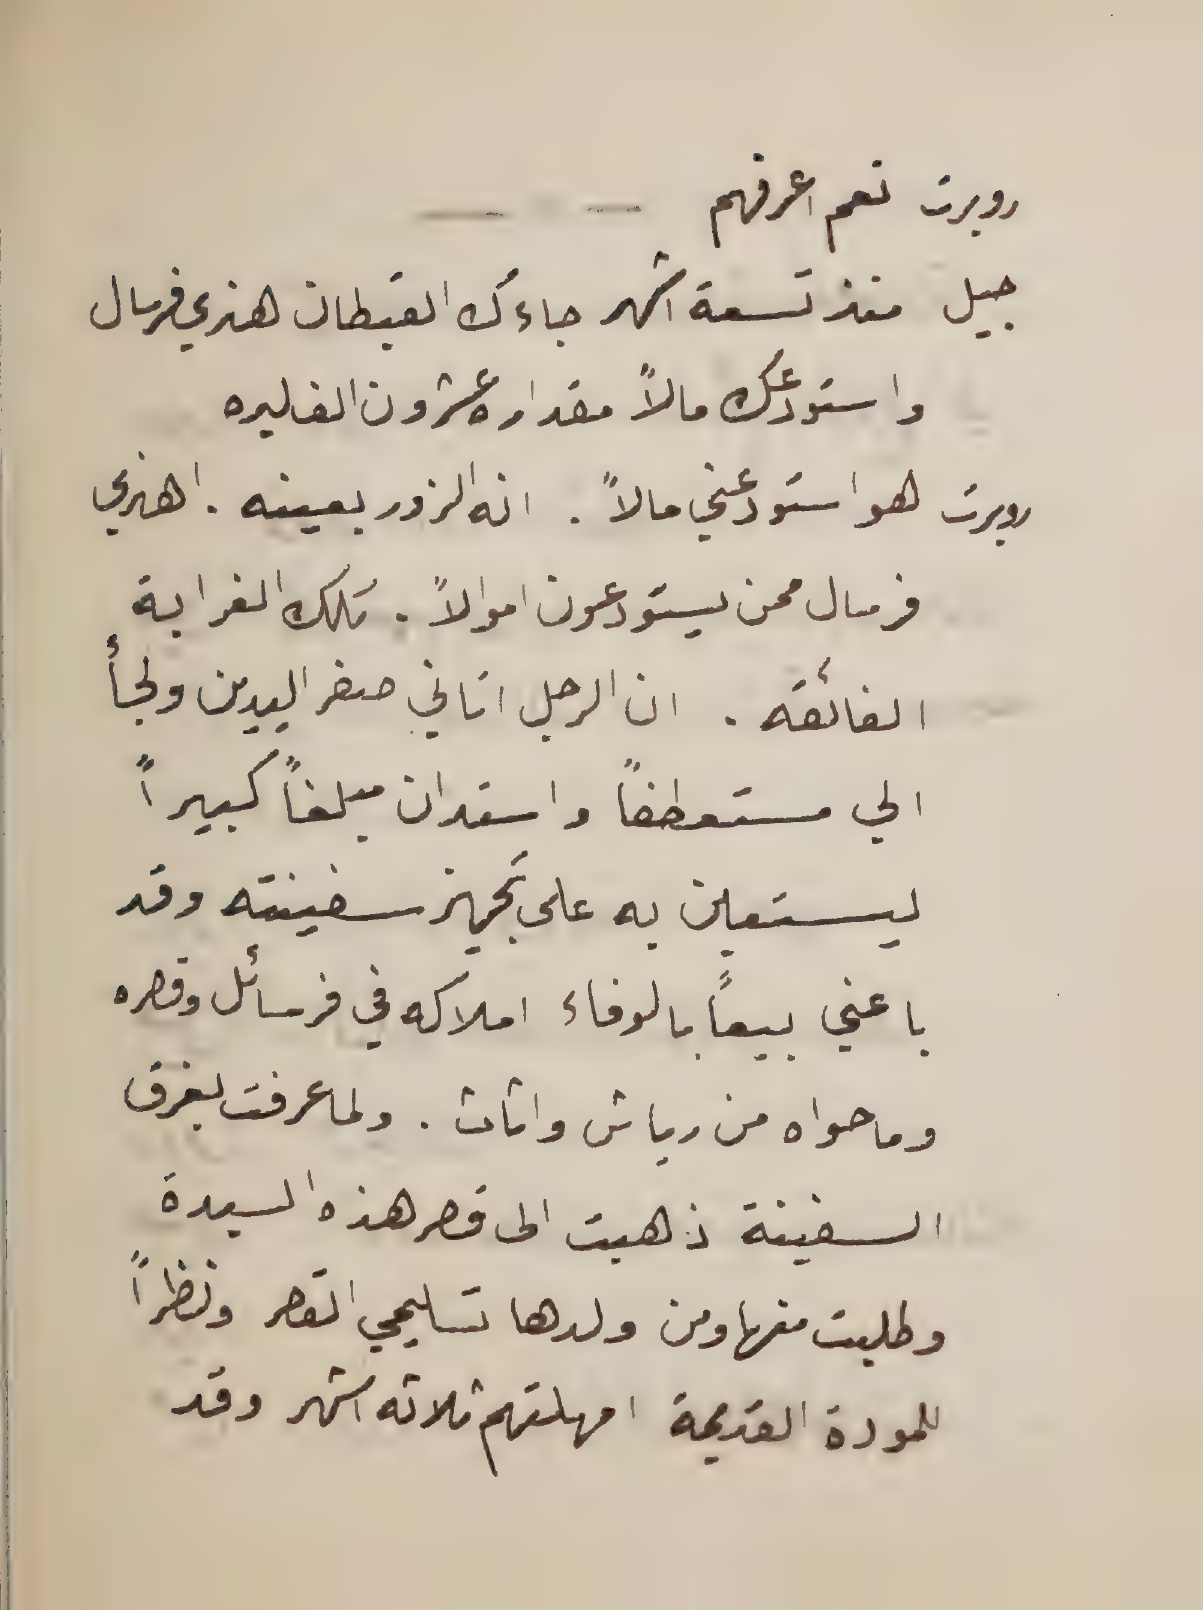 روبرت نعم اعرفهم
جيل منذ تسعة اشهر جاءك القبطان هنري فرسال
واستودعك مالاً مقداره عشرون الف ليره
روبرت هو استودعني مالاً . انه الزور بعينه . اهنري
فرسال ممن يستودعون اموالاً . تلك الغرابة
الفائقة . ان الرجل اتاني صفر اليدين ولجأ
الي مستعطفاً واستدان مبلغاً كبيراً
ليستعين به على تجهيز سفينته وقد
باعني بيعاً بالوفاء املاكه في فرسائل وقصره
وما حواه من رياش واثاث . ولما عرفت بغرق
السفينة ذهبت الى قصر هذه السيدة
وطلبت منها ومن ولدها تسليمي القصر ونظراً
للمودة القديمة امهلتهم ثلاثه اشهر وقد